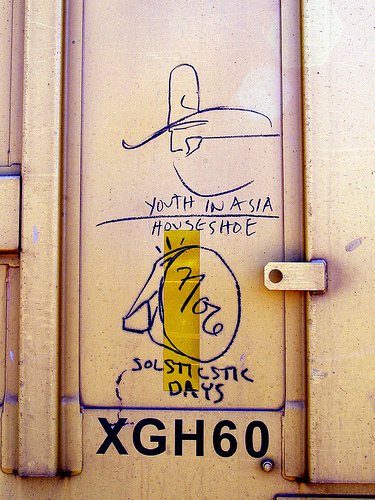 YOUTH IN ASIA
HOUSESHOE
7/06
SOLSTICSTIC
DAYS
XGH60